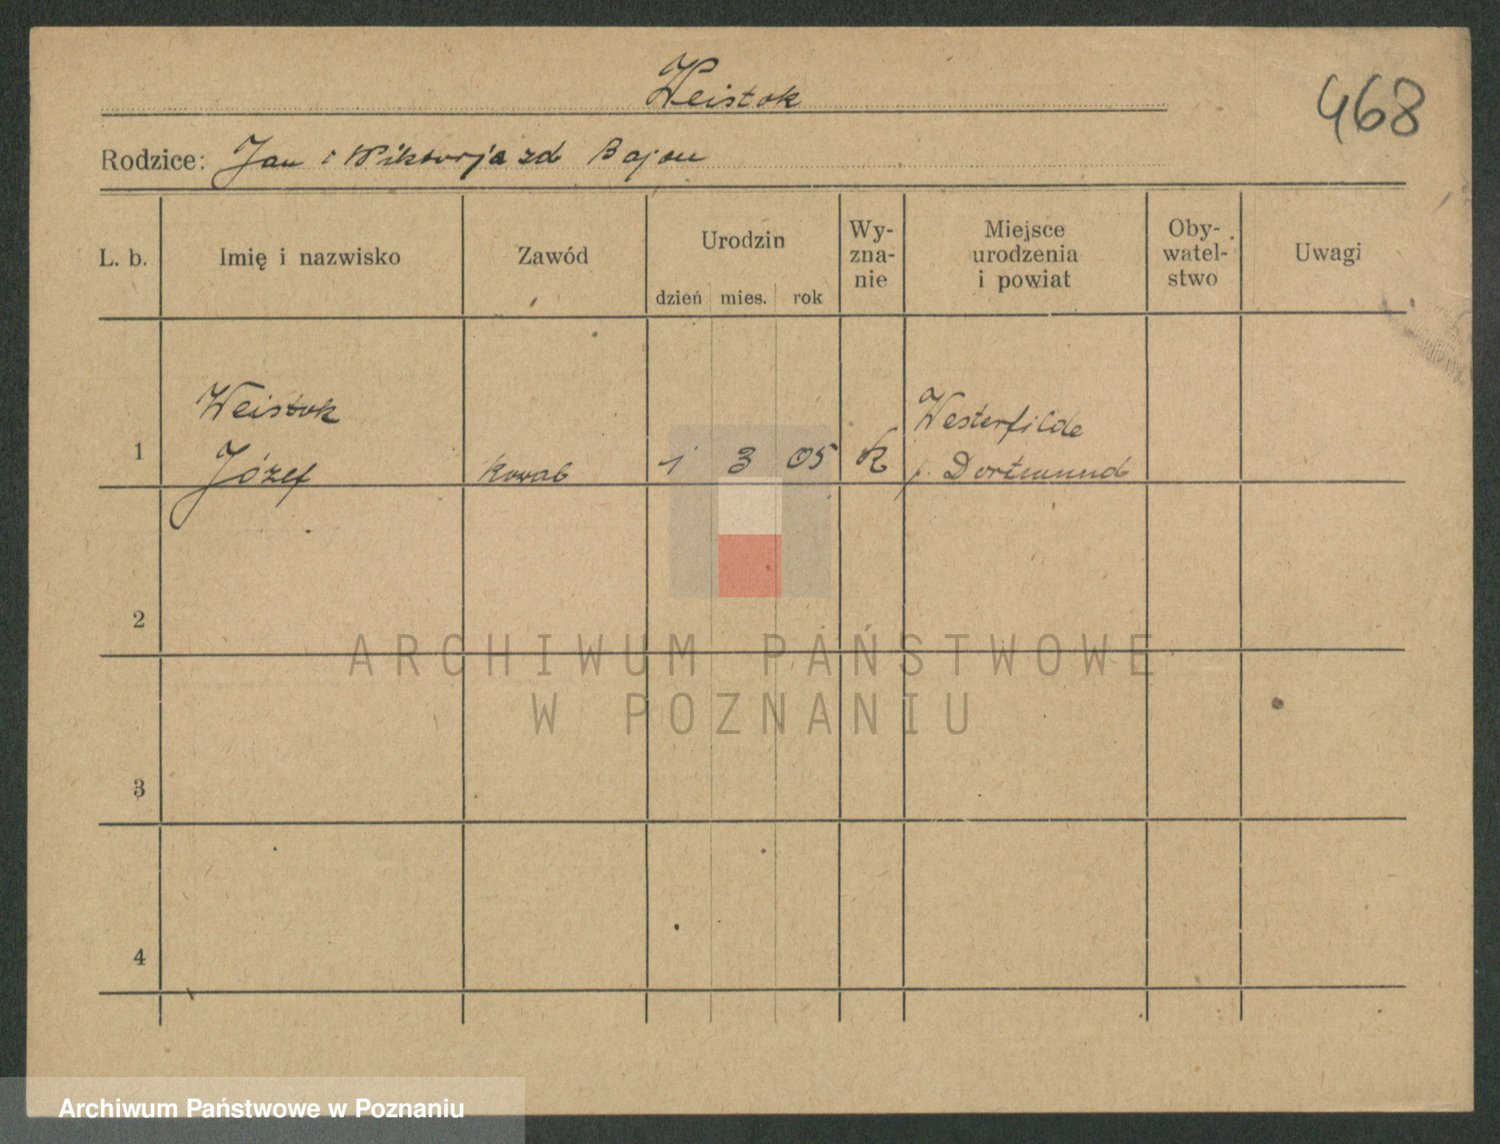 Weistok
468
Rodzice: Jan i Wiktorja zd Bajon
L. b. Imię i nazwisko Zawód Urodzin dzień mies. rok Wy-zna-nie Miejsce urodzenia i powiat Oby-watel-stwo Uwagi
Weistok Westerfilde
1 Józef kowal 1 3 05 K p. Dortmund
2
ARCHIWUM PAŃSTWOWE
W POZNANIU
3
4
Archiwum Państwowe w Poznaniu